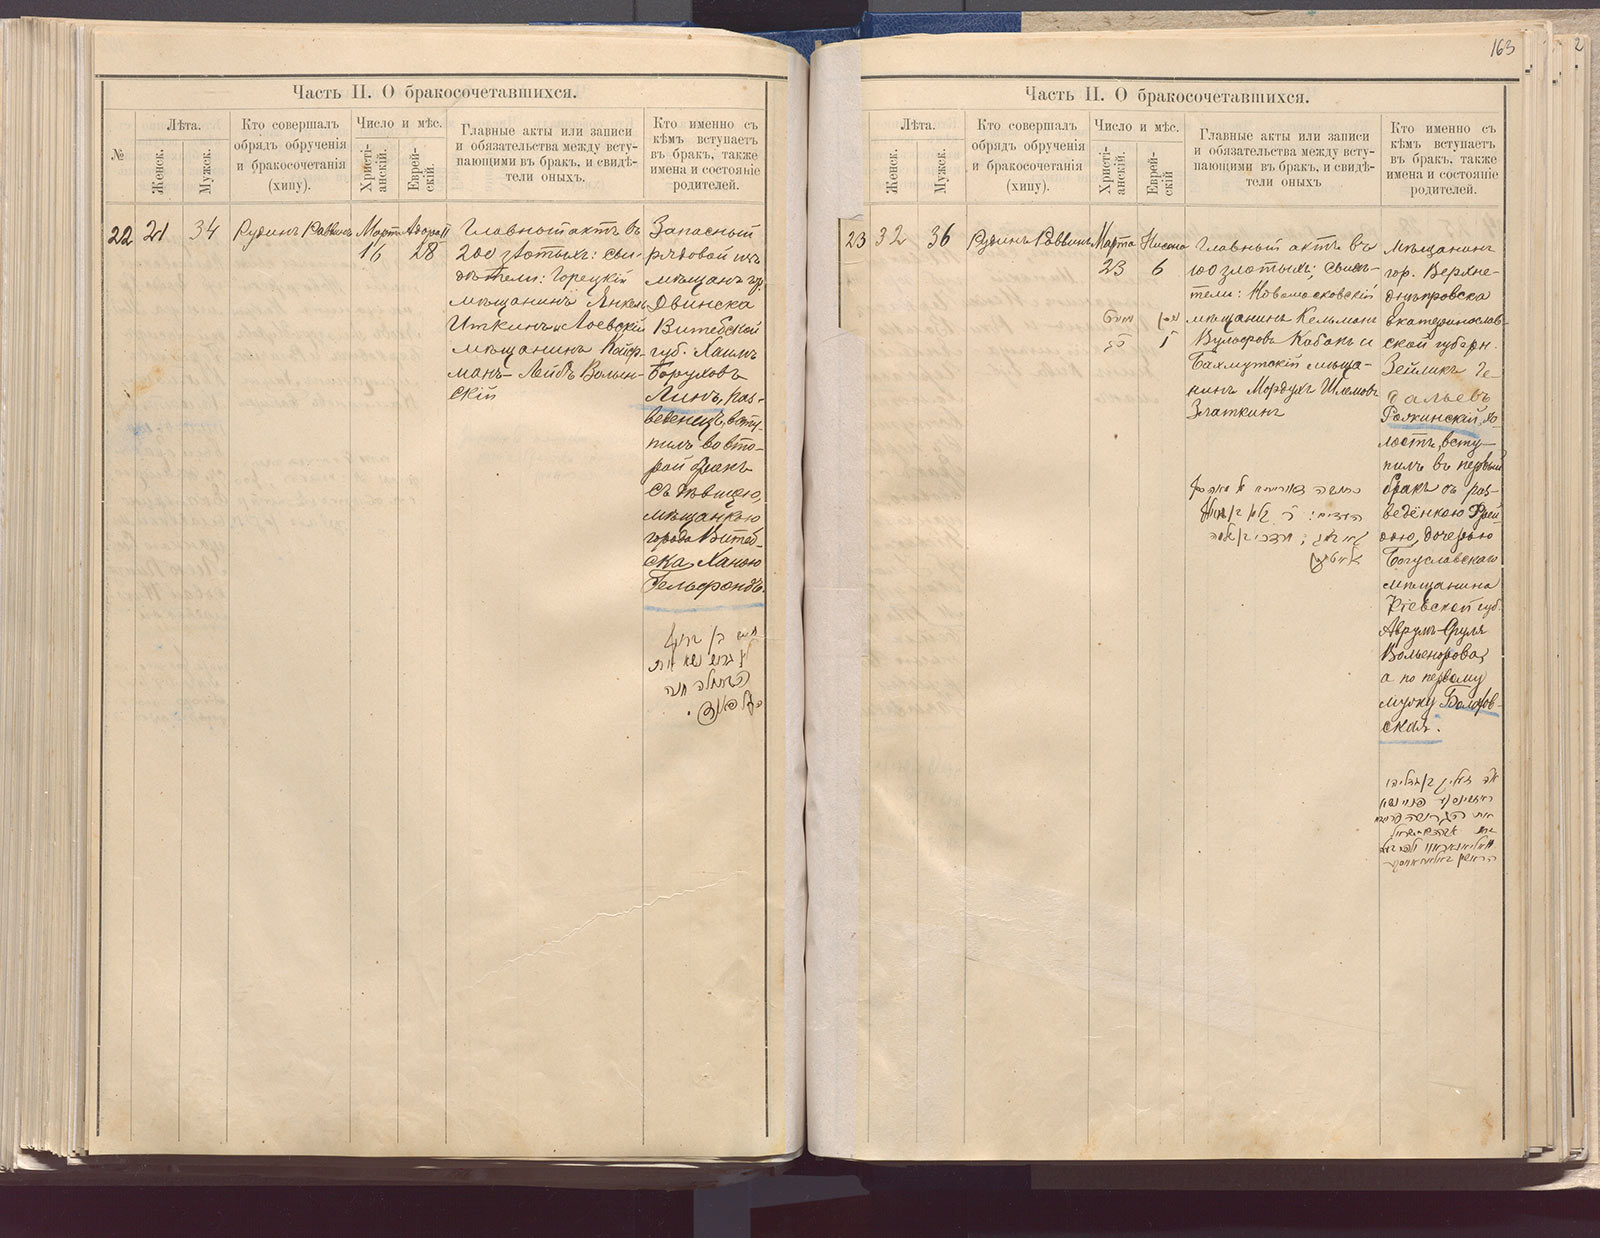 Часть II. О бракосочетавшихся.
№
Лѣта.
Женск.
Мужск.
Кто совершалъ
обрядъ обрученія
и бракосочетанія
(хипу).
Число и мѣс.
Христі-
анскій.
Еврей-
скій.
Главные акты или записи
и обязательства между всту-
пающими въ бракъ, и свидѣ-
тели оныхъ.
Кто именно съ
кѣмъ вступаетъ
въ бракъ, также
имена и состояніе
родителей.
22
21
34
Рудинъ Раввинъ
Марта
16
Адара II
28
Главный актъ въ
200 злотыхъ: сви-
дѣтели: Горецкій
мѣщанинъ Янкель
Иткинъ и Лоевскій
мѣщанинъ Койф-
манъ-Лейбъ Волын-
скій
Запасный
рядовой изъ
мѣщанъ гор.
Двинска
Витебской
губ. Хаимъ
Боруховъ
Линъ, раз-
веденецъ, всту-
пилъ во вто-
рой бракъ
съ дѣвицею,
мѣщанкою
города Витеб-
ска, Ханою
Гельфондъ.
חיים בן ברוך
לין גרוש נשא את
הבתולה חנה
העלפאנד.
163
Часть II. О бракосочетавшихся.
Лѣта.
Женск.
Мужск.
Кто совершалъ
обрядъ обрученія
и бракосочетанія
(хипу).
Число и мѣс.
Христі-
анскій.
Еврей-
скій
Главные акты или записи
и обязательства между всту-
пающими въ бракъ, и свидѣ-
тели оныхъ
Кто именно съ
кѣмъ вступаетъ
въ бракъ, также
имена и состояніе
родителей.
23
32
36
Рудинъ Раввинъ
Марта
23
Нисана
6
מארט
כג
ניסן
ו
Главный актъ въ
100 злотыхъ; свидѣ-
тели: Новомосковскій
мѣщанинъ Кельманъ
Вульфовъ Кабакъ и
Бахмутскій мѣща-
нинъ Мордухъ Шлемовъ
Златкинъ
Мѣщанинъ
гор. Верхне-
днѣпровска
Екатеринослав-
ской губерн.
Зейликъ Ге-
дальевъ
Рожинскій, хо-
лостъ, всту-
пилъ въ первый
бракъ съ раз-
ведёною Фрей-
дою, дочерью
Богуславскаго
мѣщанина
Кіевской губ.
Аврумъ-Сруля
а по первому
мужу
ская.